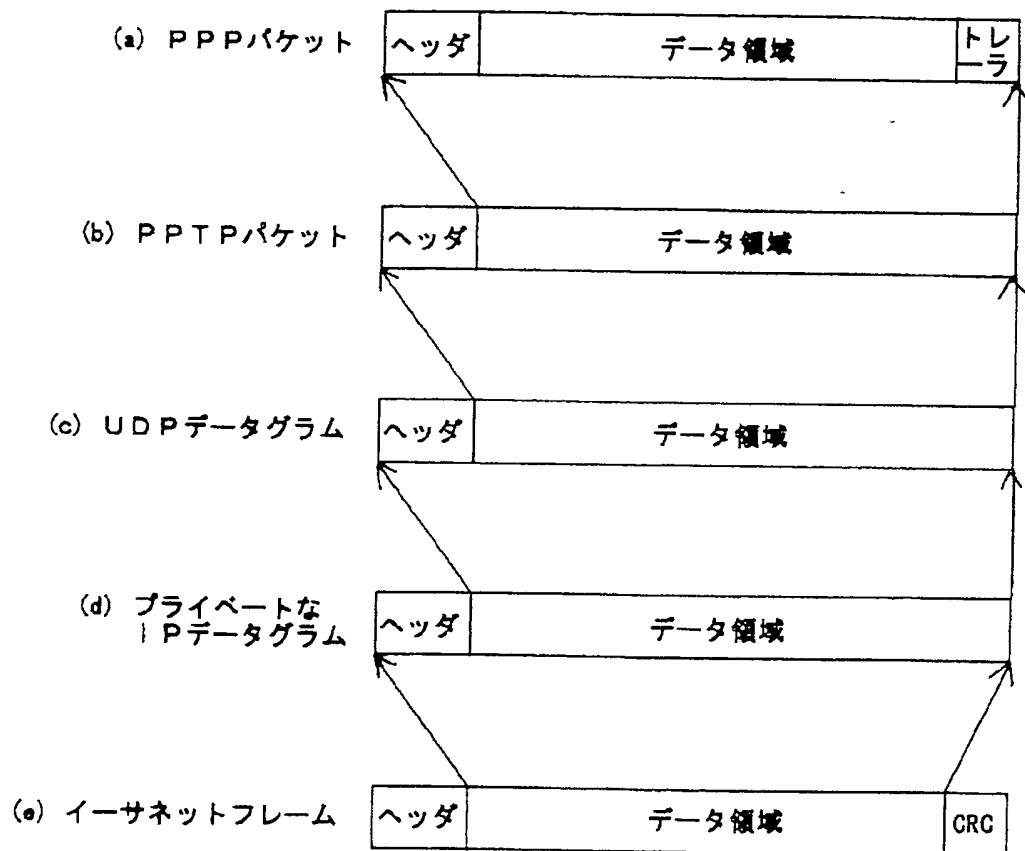 (a) PPPパケット
ヘッダ
データ領域
トレーラ
(b) PPTPパケット
ヘッダ
データ領域
(c) UDPデータグラム
ヘッダ
データ領域
(d) プライベートな
IPデータグラム
ヘッダ
データ領域
(e) イーサネットフレーム
ヘッダ
データ領域
CRC